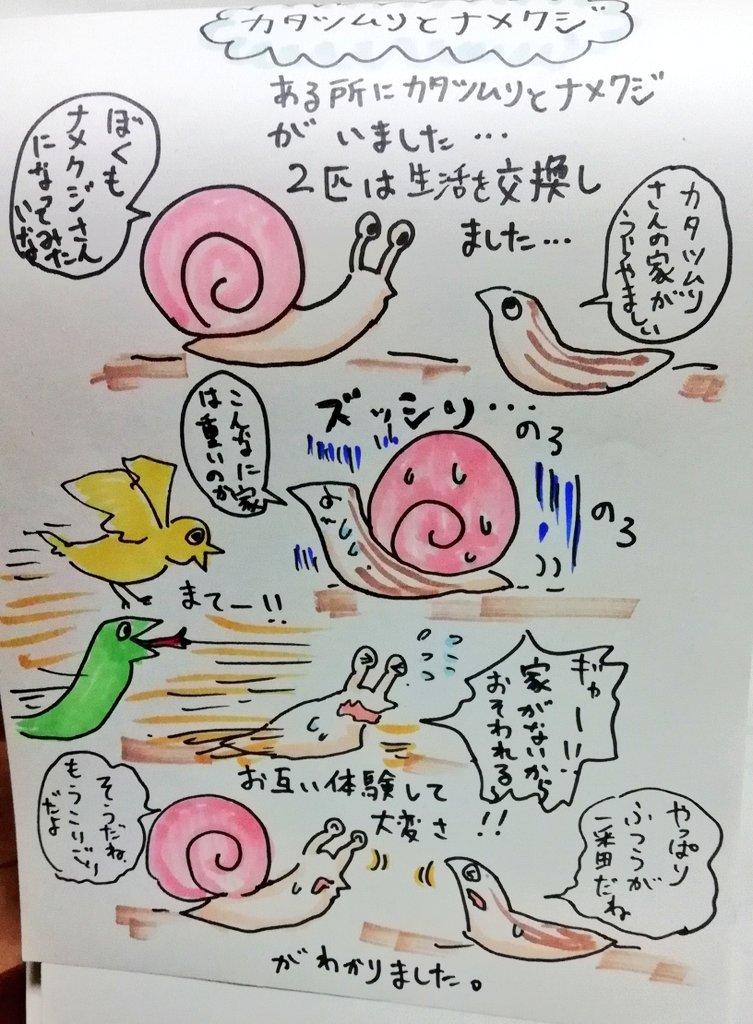 カタツムリとナメクジ
ある所にカタツムリとナメクジ
がいました…
2匹は生活を交換し
ました…
カタツムリ
さんの家が
うらやましい
ぼくも
ナメクジさん
になってみた
いな
ズッシリ…
のろ
のろ
こんなに家
は重いのか
まてー!!
ギャー!!
家がないから
おそわれる
お互い体験して
大変さ!!
やっぱり
ふつうが
一番だね
そうだね
もうこりごり
だよ
がわかりました。